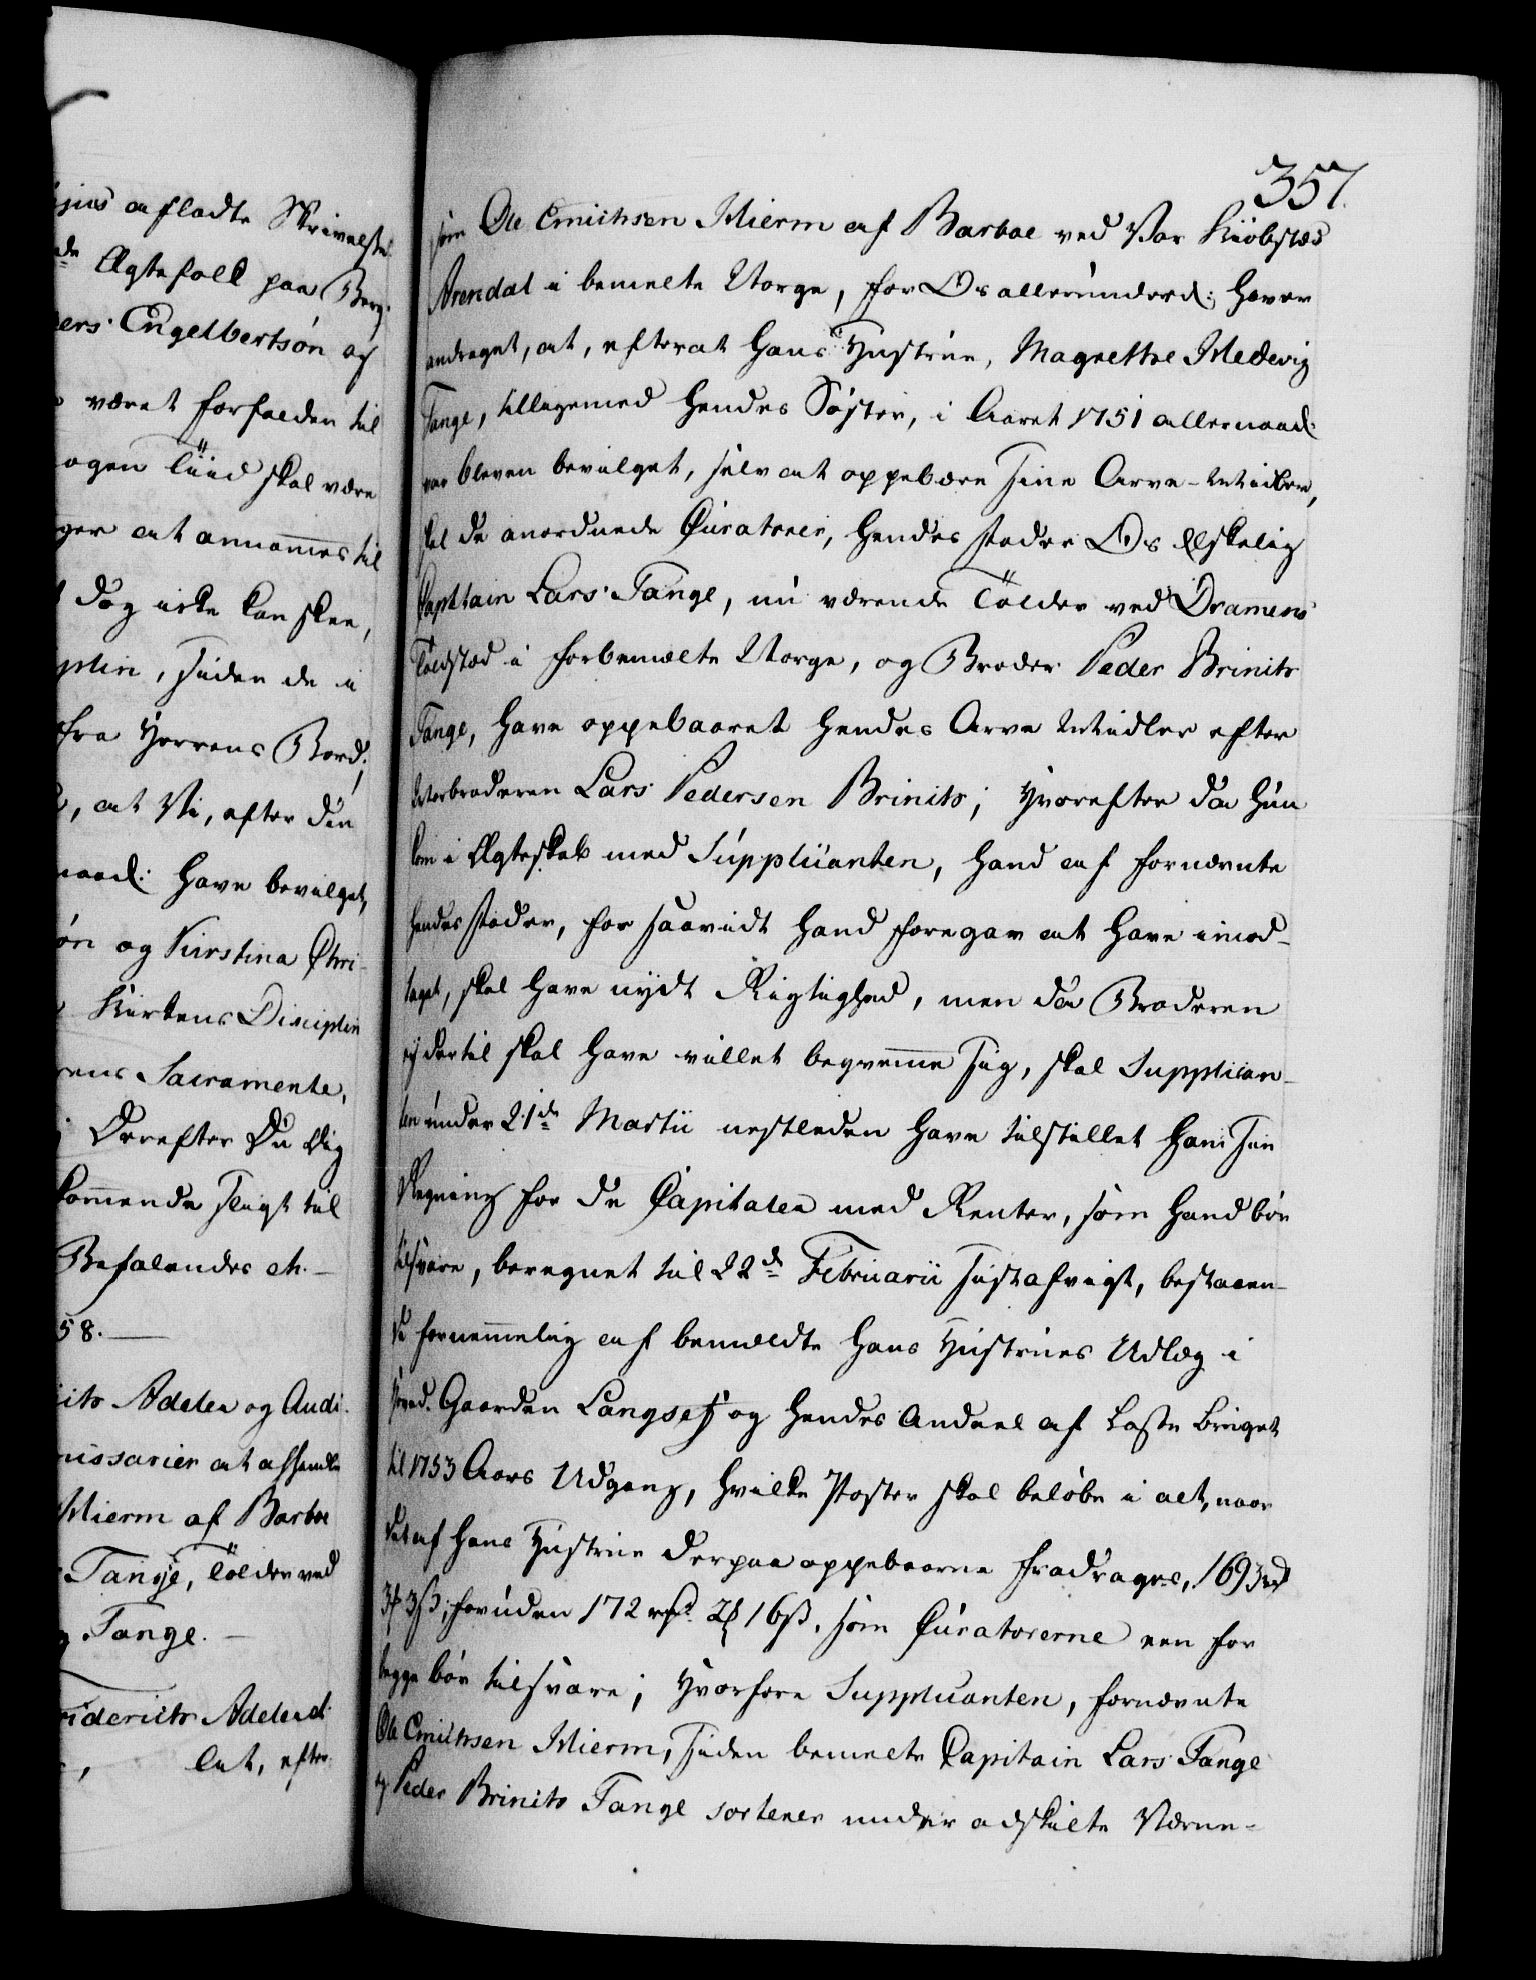 ajus afladte Skrivelse
de Ægtefolk paa Berg
ders Engelbertsøn og
været forfalden til
ogen Tiid skal være
ger at annammes til
dog icke kan skee,
plin, siden de i
fra Herrens Bord;
at Vi, efter din
naad: have bevilget,
øn og Kirstina Chri-
Kirkens Disciplin
rens Sacramente,
Derefter Du Dig
kommende sligt til
Befalendes etc.
58.
its Adeler og Audi-
missarier at afhandle
Hierm af Barboe
Tange, Tolder ved
Tange.
riderichs Adeler d
Lat, efter
357.
som Ole Emichsen Hierm af Barboe ved Vor Kiøbstæd
Arendal i bemelte Norge, for Os allerunderd: haver
andraget, at, efterat hans Hustrue, Magrethe Hedevig
Tange, tilligemed hendes Søster, i Aaret 1751 allernaad:
var bleven bevilget, selv at oppebære sine Arve-Midler,
skal de anordnede Curatores, hendes Fader Os Elskelig
Capitain Lars Tange, nu værende Tolder ved Dramens
Toldstæd i forbemelte Norge, og Broder Peder Brinits
Tange, have oppebaaret hendes Arve Midler efter
Morbroderen Lars Pedersen Brinits; Hvorefter da hun
kom i Ægteskab med Supplicanten, hand af fornævnte
hendes Fader, for saavidt hand foregav at have imod-
taget, skal have nydt Rigtighed, men da Broderen
ej dertil skal have villet beqvemme sig, skal Supplican-
ten under 21de Martii nestleden have tilstillet ham sin
Regning for de Capitaler med Renter, som hand bør
tilsvare, beregnet til 22de Februarii sidstafvigt, bestaaen-
de fornemmelig af bemeldte hans Hustrues Udlæg i
hoved Gaarden Langsej og hendes Andeel af Laste Bruget
til 1753 Aars Udgang, hvilke Poster skal beløbe i alt, naar
det af hans Hustrue derpaa oppebaarne fradrages, 1693 rd
3 ℔ 3 ß; foruden 172 rd 2 ℔ 16 ß, som Curatorerne een for
begge bør tilsvare; Hvorfore Supplicanten, fornævnte
Ole Emichsen Hierm, siden bemelte Capitain Lars Tange
og Peder Brinits Tange sorterer under adskilte Værne-